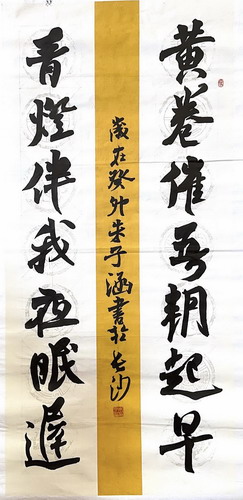 黄卷催吾朝起早
青燈伴我夜眠遲
歲在癸卯朱子涵書於長沙